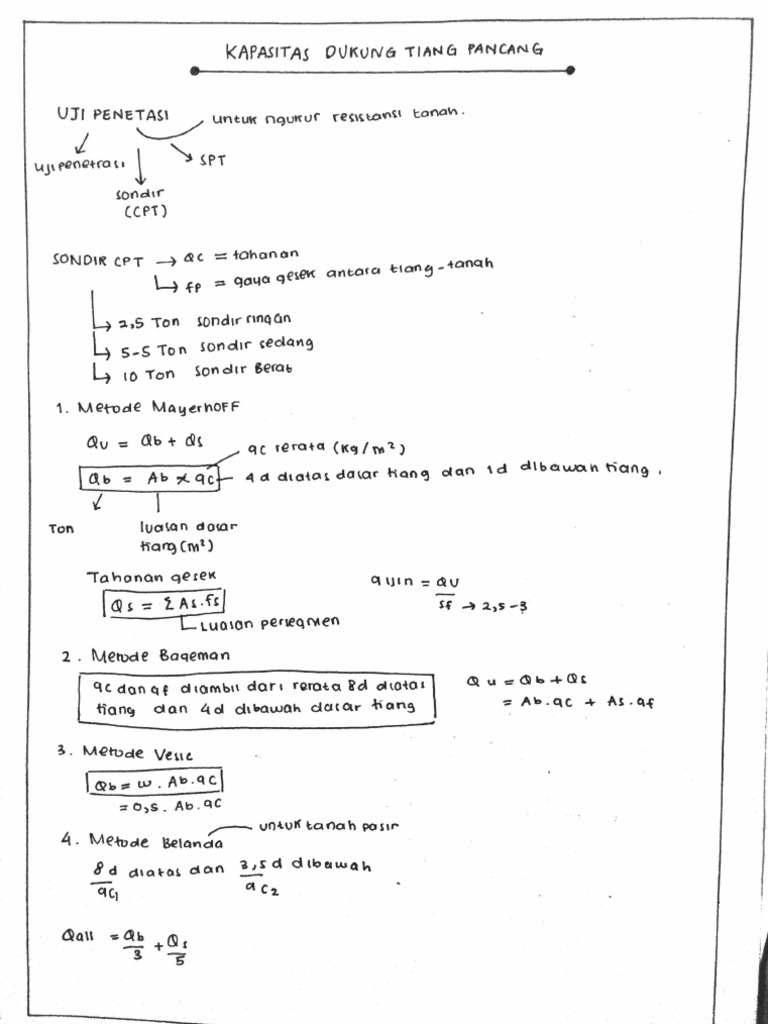 KAPASITAS DUKUNG TIANG PANCANG
UJI PENETASI
untuk ngukur resistansi tanah.
uji penetrasi
SPT
sondir
(CPT)
SONDIR CPT → QC = tahanan
fp = gaya gesek antara tiang-tanah
2,5 Ton sondir ringan
5-5 Ton sondir sedang
10 Ton sondir Berat
1. Metode MayerhoFF
Qu = Qb + Qs
qc rerata (kg/m²)
Qb = Ab x qc
4d diatas dasar tiang dan 1d dibawah tiang.
Ton
luasan dasar
tiang (m²)
Tahanan gesek
Qs = Σ As.fs
Luasan persegmen
qijin = QU
sf → 2,5-3
2. Metode Bageman
qc dan qf diambil dari rerata 8d diatas
tiang dan 4d dibawah dasar tiang
Qu = Qb + Qs
= Ab.qc + As.qf
3. Metode Vesic
Qb = w. Ab.qc
= 0,5. Ab.qc
4. Metode Belanda
untuk tanah pasir
8d diatas dan 3,5d dibawah
qc1
qc2
Qall = Qb/3 + Qs/5